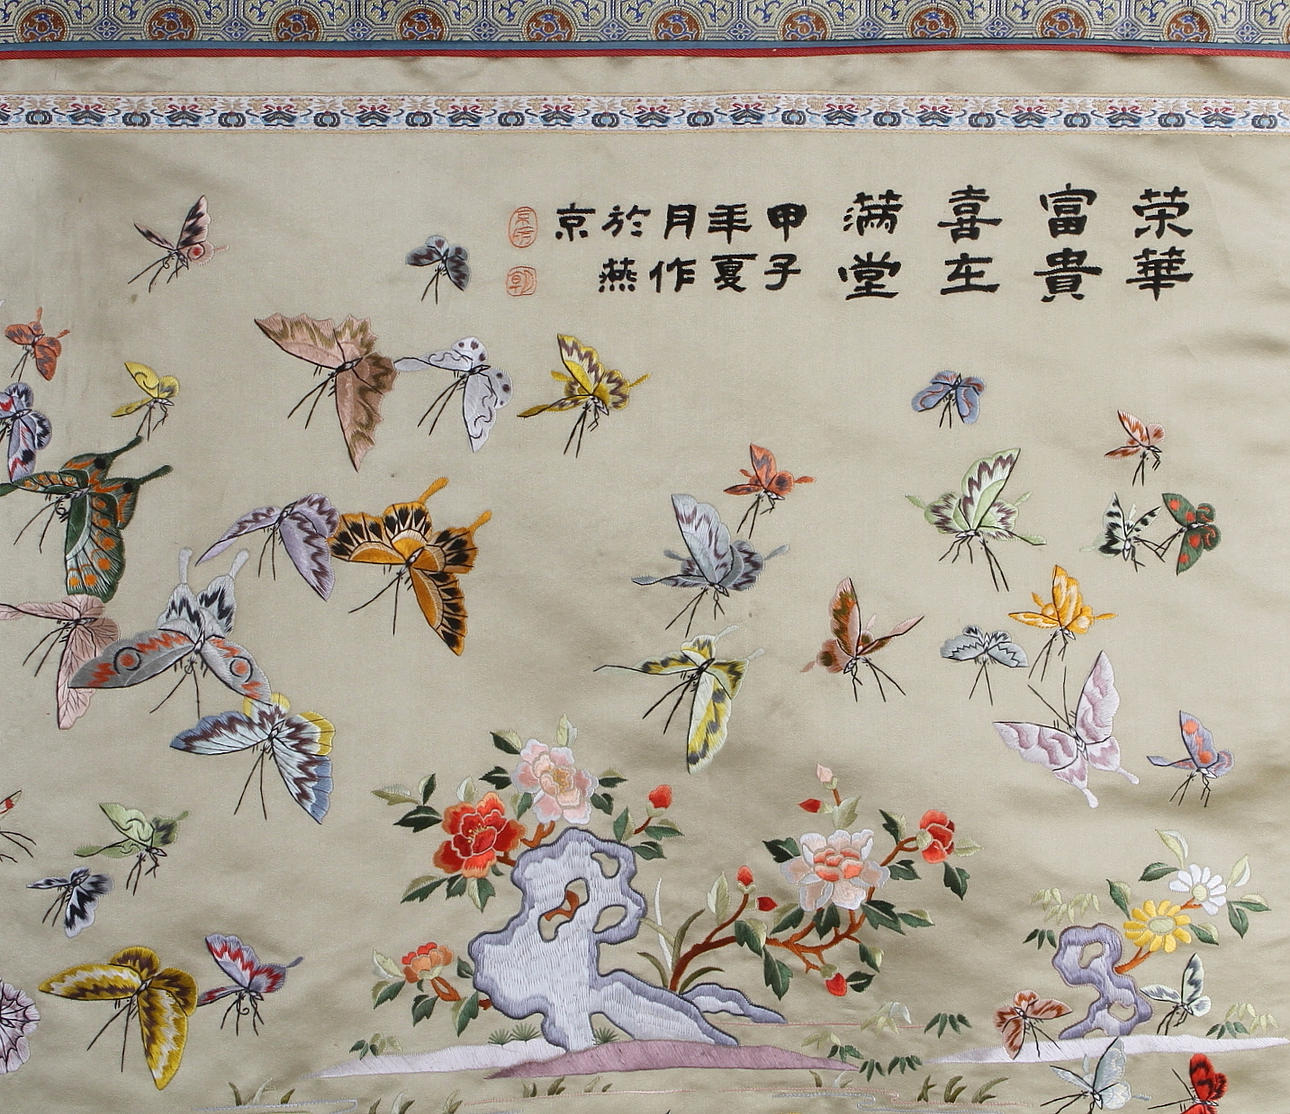 荣華
富貴
喜在
满堂
甲子
年夏
月作
於燕
京